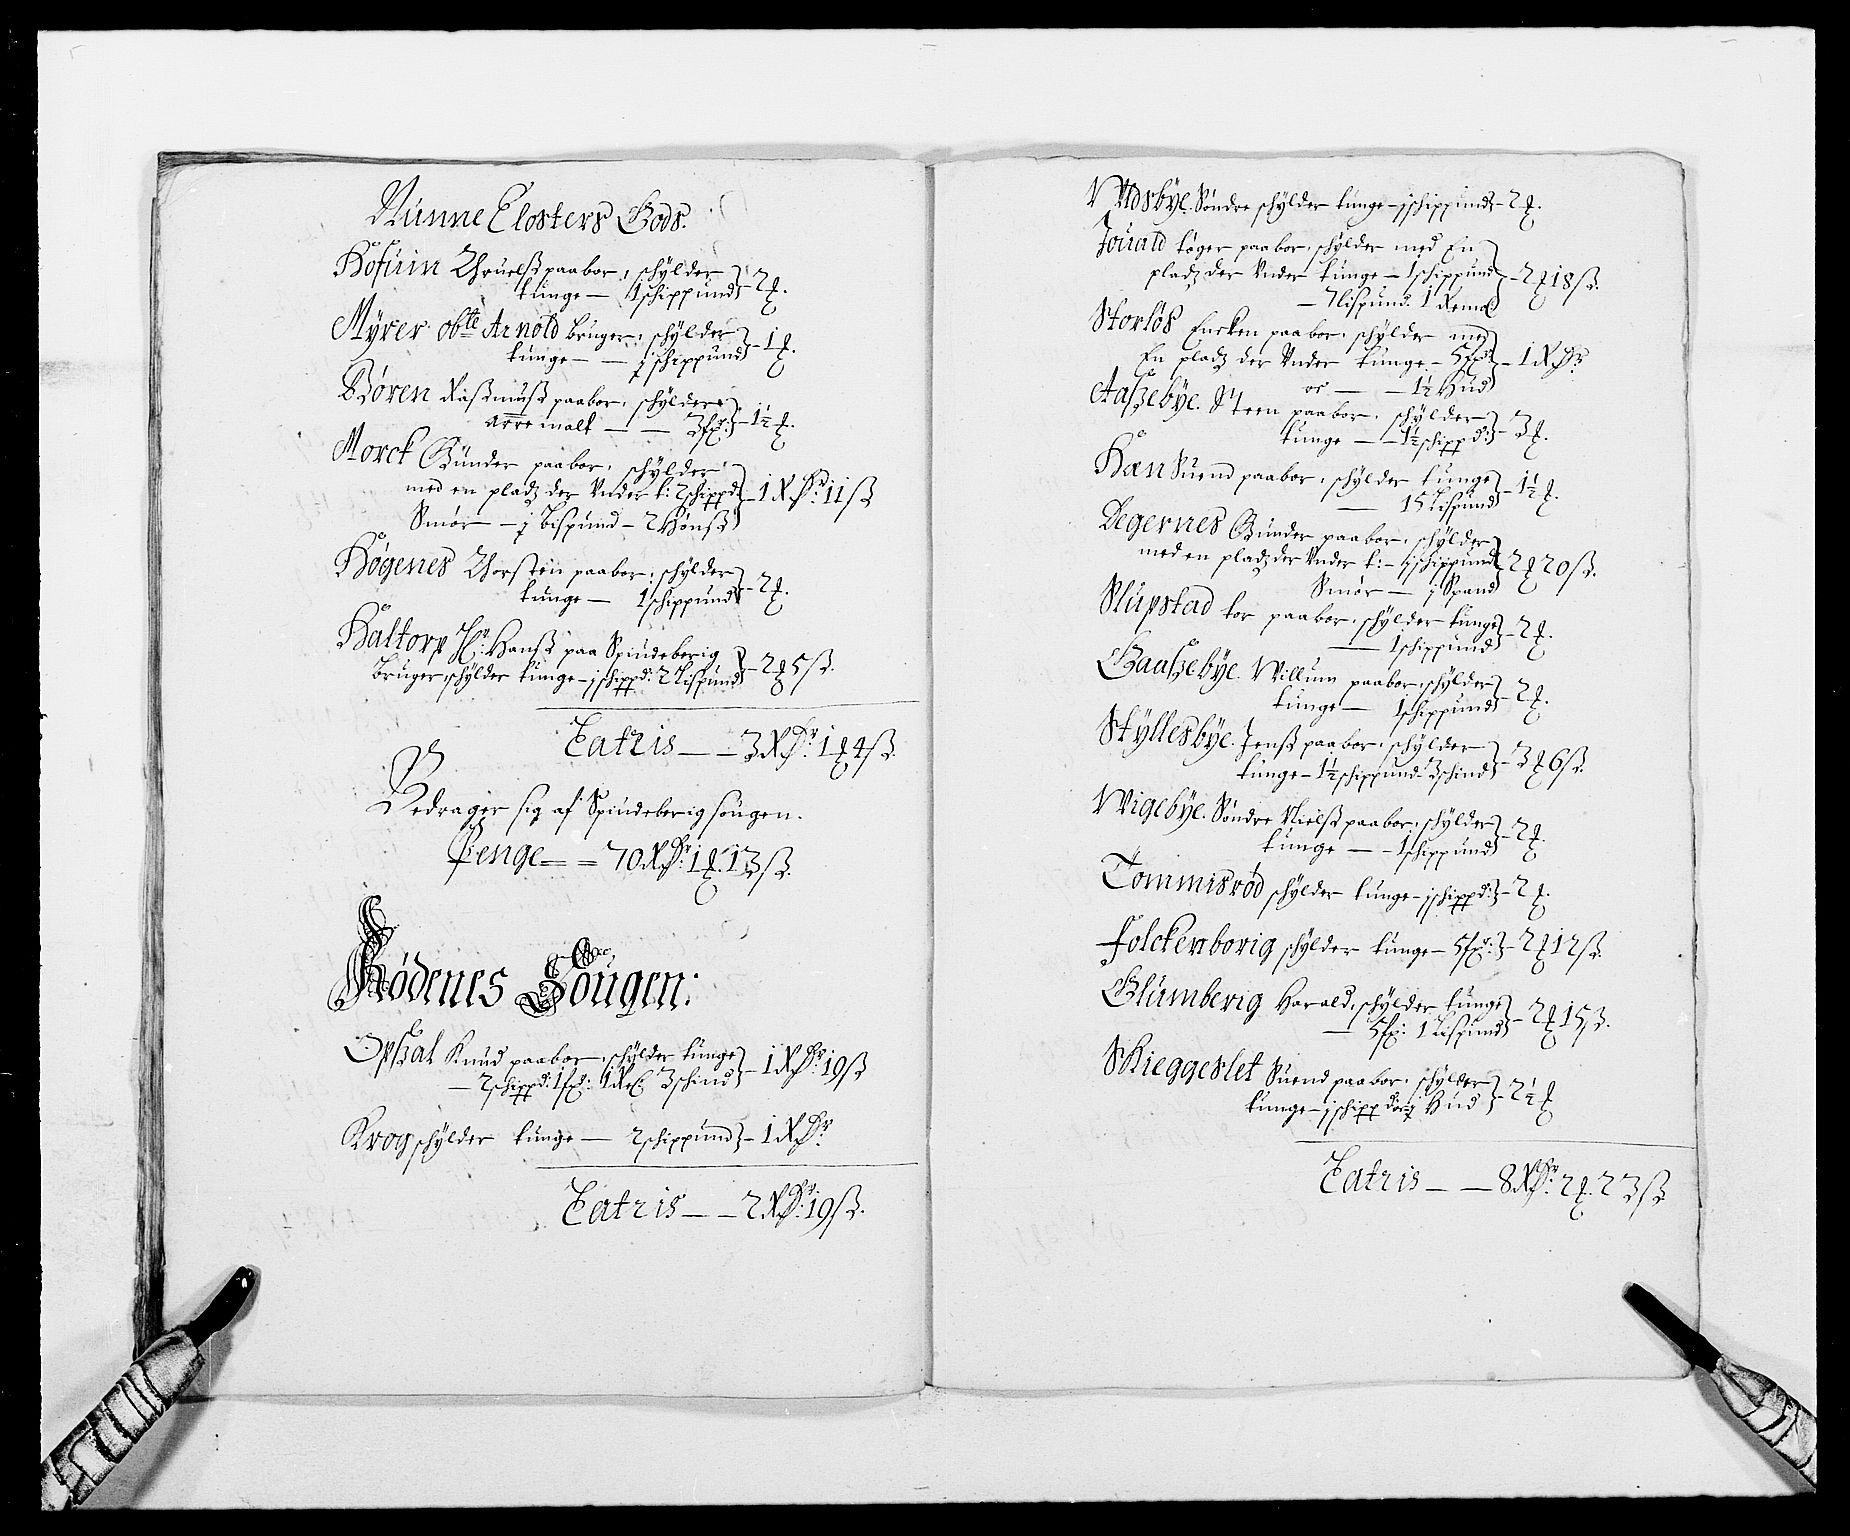 Nunne Closters Gods.
Hofuin Thruelß paabor, schylder
tunge — 1 schippund – 2 ƥ.
Myrer obte Arnold bruger, schylder
tunge — — ½ schippund – 1 ƥ.
Børen Raßmuß paabor, schylder
arre malt — — 3 fr: – 1½ ƥ.
Morck Gunder paabor, schylder
med en pladz der Under t: 2 schippd: – 1 Rdr: 11 ß
Smør — ½ bispund – 2 Hønß
Høgenes Thorsten paabor, schylder
tunge — 1 schippund – 2 ƥ.
Haltorp Hr: Hanß paa Spindeberig
bruger, schylder tunge – j schippd: 2 Lispund – 2 ƥ 5 ß.
Latris — — 3 Rdr: 1 ƥ 4 ß.
Bedrager sig af Spindeberig sougen.
Penge — — 70 Rdr: 1 ƥ. 13 ß.
Rødenes Sougen:
Opsal Knud paabor, schylder tunge
— 2 schippd: 1 fr: 1 Re: 3 schind – 1 Rdr: 19 ß
Krog schylder tunge — 2 schippund – 1 Rdr:
Latris — — 2 Rdr: 19 ß.
Udsbye. Søndre schylder tunge – j schippund – 2 ƥ.
Jouald tøger paabor, schylder med En
pladz der Under tunge — 1 schippund – 2 ƥ 18 ß.
— 7 lispund. 1 Remel
Storløs Encken paabor, schylder med
En pladz der Under tunge – 5 fr: – 1 Rdr:
oc — — 1½ Hud
Aaßebye. Steen paabor, schylder
tunge — – 1½ schippd: – 3 ƥ.
Haen Suend paabor, schylder tunge
— 15 Lispund – 1½ ƥ.
Degernes Gunder paabor, schylder
med en pladz der Under t: – ½ schippund 2 ƥ 20 ß.
Smør — ½ Spand
Slupstad tor paabor, schylder tunge
— 1 schippund – 2 ƥ.
Gaaßebye. Willum paabor, schylder
tunge — 1 schippund – 2 ƥ.
Styllesbye. Jenß paabor, schylder
tunge – 1½ schippund – 3 schind – 3 ƥ 6 ß.
Wigebye. Søndre Nielß paabor, schylder
tunge — – 1 schippund – 2 ƥ.
Tommisrød schylder tunge – j schippd: – 2 ƥ.
Folckenborig schylder tunge – 5 fr: – 2 ƥ 12 ß.
Glumberig Harald, schylder tunge
— 5 fr: 1 Lispund – 2 ƥ 15 ß.
Skieggeslet Suend paabor, schylder
tunge – j schippd: og ½ Hud – 2½ ƥ
Latris — — 8 Rdr: 2 ƥ. 23 ß